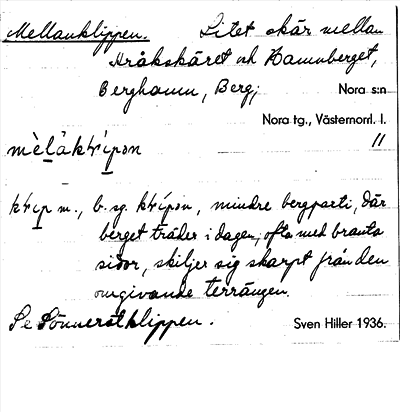 Mellanklippen. Litet skär mellan
Kråkskäret och Hamnberget,
Berghamn, Berg; Nora s:n
Nora tg., Västernorrl. l.
mèlàkĺípon 11
klip m., b. sg. klípon, mindre bergparti, där
berget träder i dagen, ofta med branta
sidor, skiljer sig skarpt från den
omgivande terrängen.
Se Sönnerstklippen. Sven Hiller 1936.